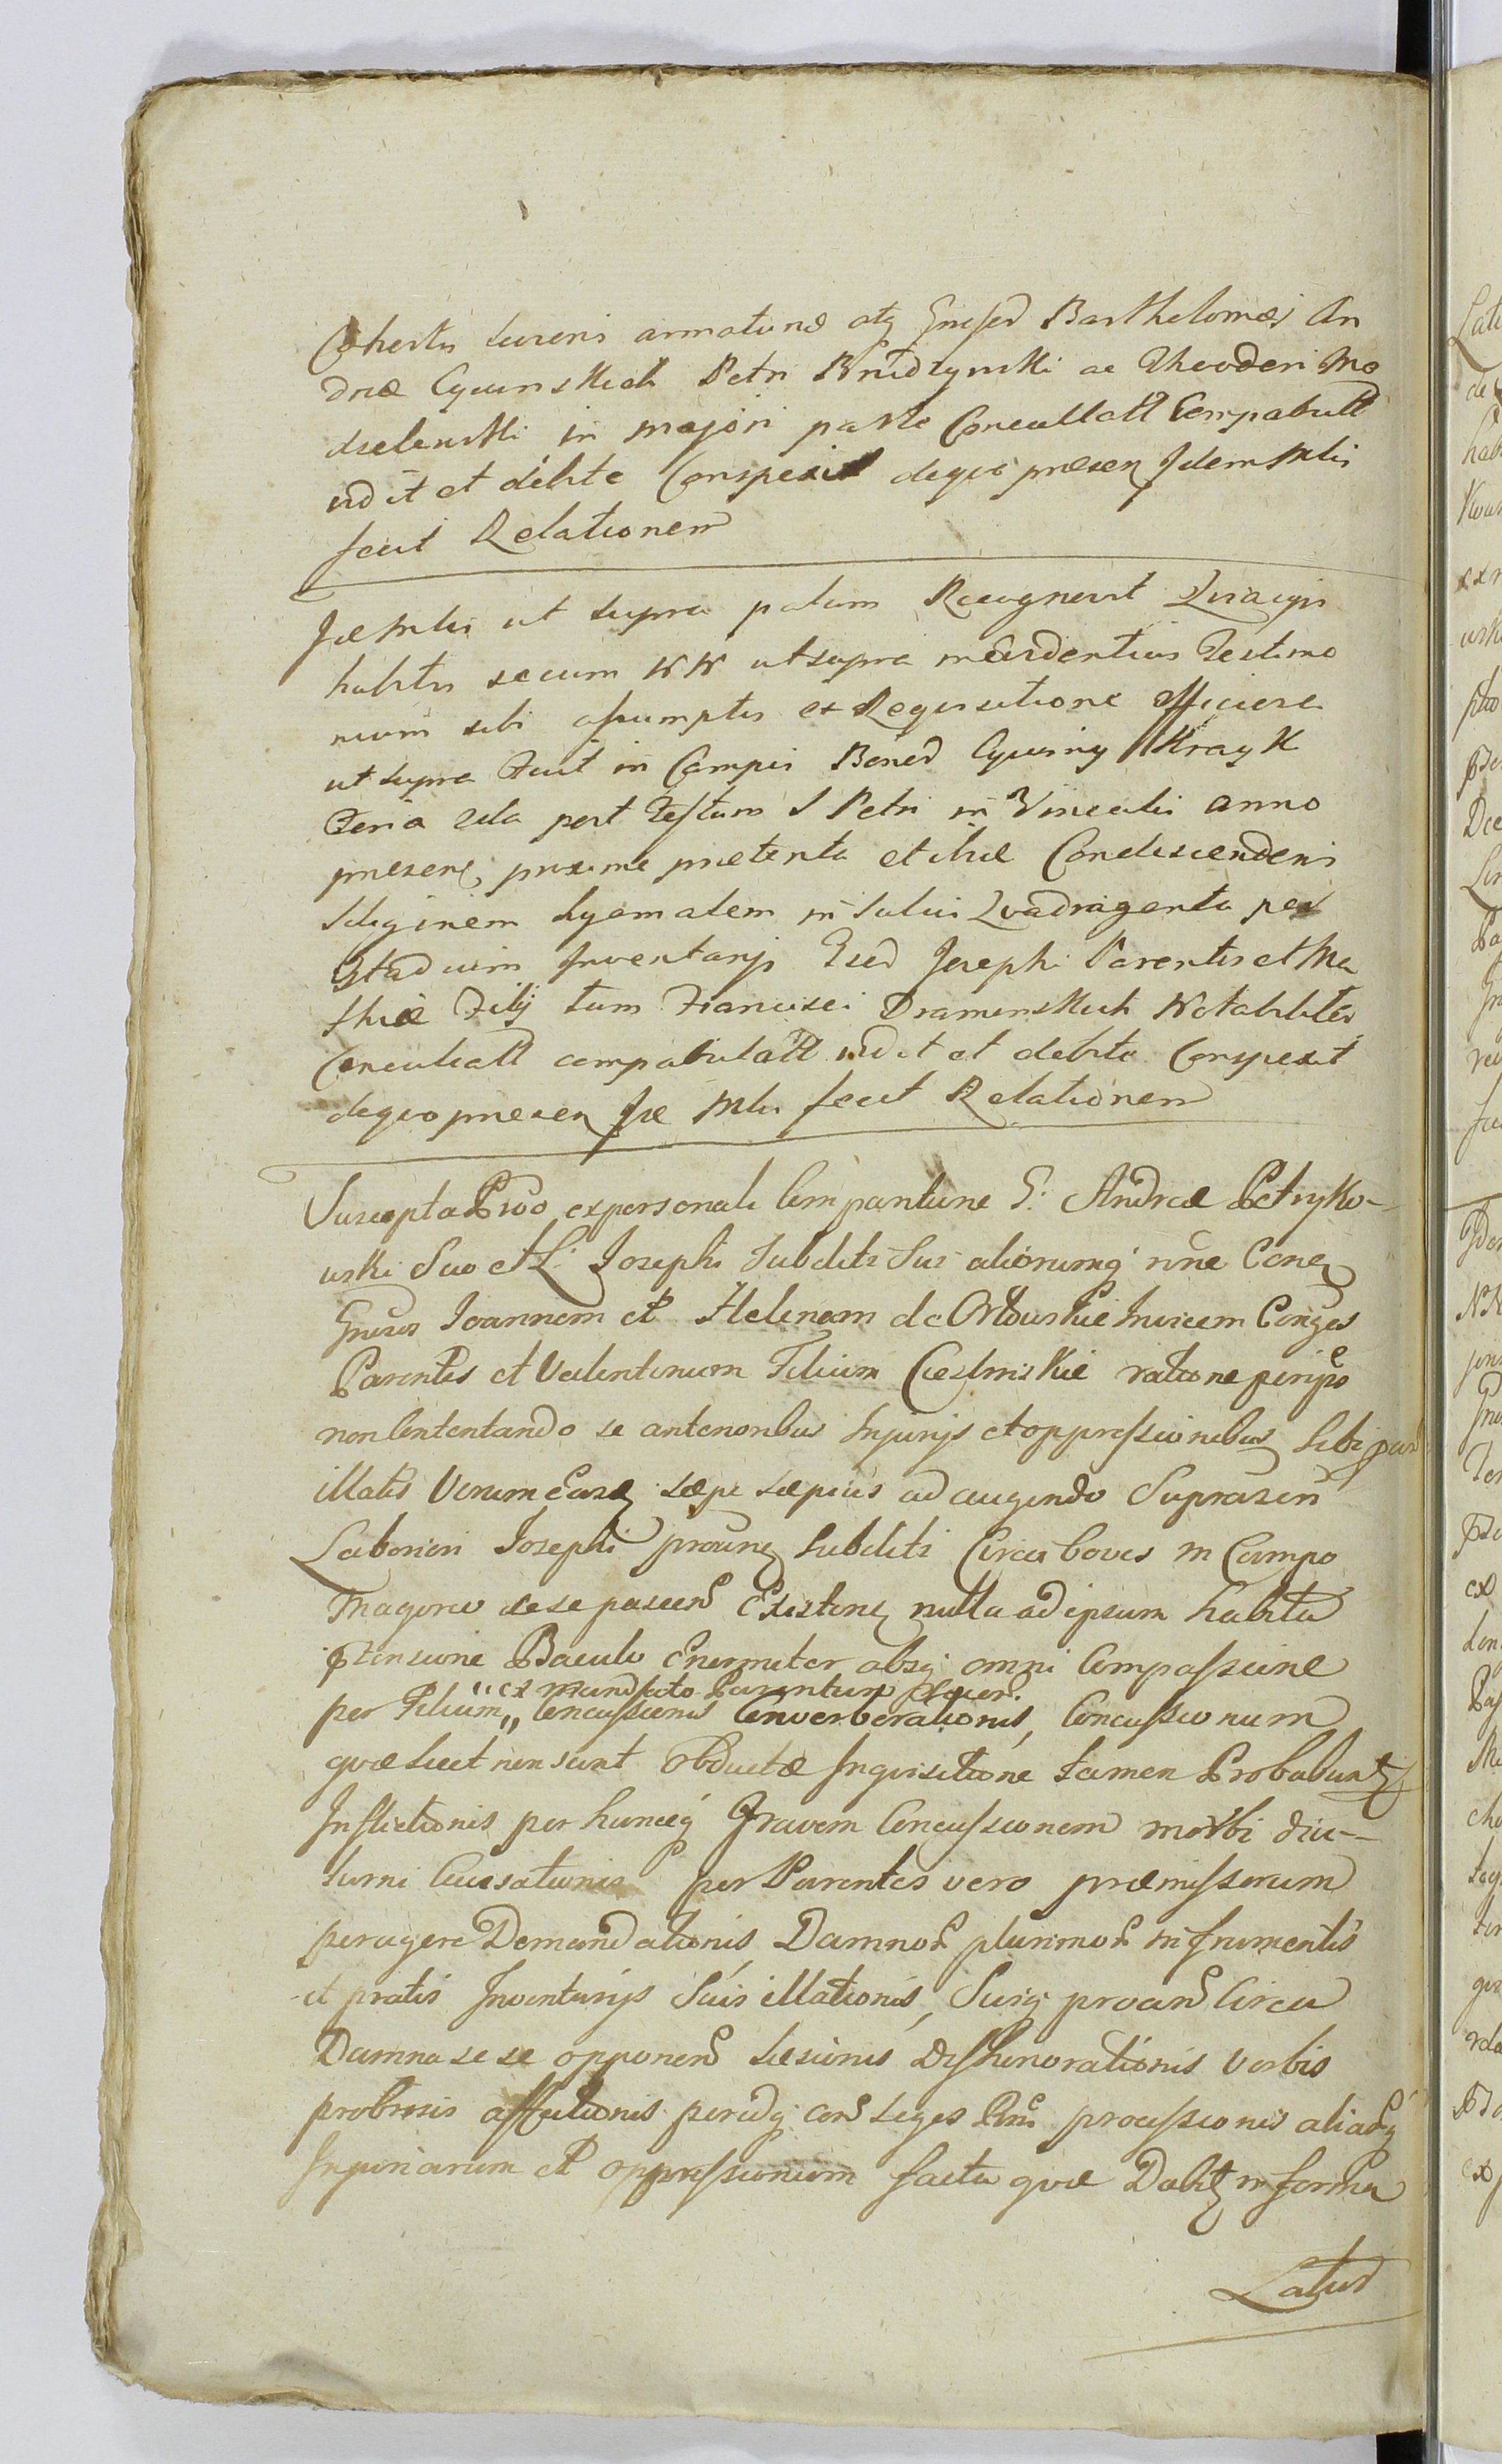 Cohertis levioris armaturae atq Gnesor Bartholomei An
dreae Cywinskich Petri Brudzynski ac Theodori Mo
dzelewski in majori parte Conculcatt Compabulatt
vidit et debite Conspexit deqvo praesen Idem Mlis
fecit Relationem
Idem Mlis ut supra palam Recognovit Qvia ipse
habitis secum NN ut supra in evidentius Testimo
nium sibi assumptis ex Reqvisitione officiosa
ut supra Fuit in Campis Bonor Cywiny
Feria 2da post Festum S Petri in Vinculis anno
praesen, proxime praeterita et ibid Condescendens
Siliginem hyemalem in Sulcis Qvadraginta per
Stadium Inventarys Gser Josephi Parentis et Ma
thiae Filij tum Francisci Dramenskich Notabiliter
Conculcatt compabulatt vidit et debite Conspexit
deqvo praesen Idem Mlis fecit Relationem
Suscepta Prôo expersonali Comparitione G: Andreae Petryko-
wski Suo et L: Josephi Subditi Sui aliorumq nne Conq
Gnosos Joannem et Helenam de Orłowskie Invicem Conjges
Parentes et Valentinum Filium Ciezlinskie ratione
non Contentando se anterioribus Injurijs et oppressionibus Sibi
illatis Verum Easq saepe saepius adaugendo Suprascri
Laboriosi Josephi proun Subditi Circa boves in Campo
se se pascen Existen nulla ad ipsum habita
ptensione Baculo Enormiter absq omni Compassione
"ex mandato Parentum
per Filium" Concussionis Converberationis, Concussionum
qvae licet non sunt obductae Inqvisitione tamen Probabunt
Inflictionis per huncq Gravem Concussionem morbi diu-
turni Causationis per Parentes vero praemissorum
peragere Demandationis Damnor plurimor in frumentis
et pratis Inventarijs Suis illationis, Suiq Circa
Damna se se opponen Laesionis Dishonorationis verbis
probrosis affectionis peridq con Leges processionis aliarq
Injuriarum et oppressionum facta qvae Dabit in forma
Latius